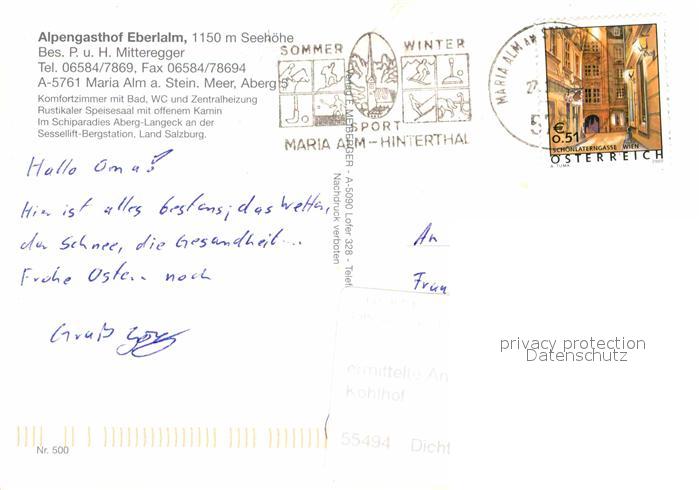 Alpengasthof Eberlalm, 1150 m Seehöhe
Bes. P. u. H. Mitteregger
Tel. 06584/7869, Fax 06584/78694
A-5761 Maria Alm a. Stein. Meer, Aberg 5
Komfortzimmer mit Bad, WC und Zentralheizung
Rustikaler Speisesaal mit offenem Kamin
Im Schiparadies Aberg-Langeck an der
Sessellift-Bergstation, Land Salzburg.
SOMMER WINTER
SPORT
MARIA ALM-HINTERTHAL
MARIA ALM AM
€ 0.51
SCHÖNLATERNGASSE WIEN
ÖSTERREICH
A. TUMA
Hallo Oma!
Hier ist alles bestens; das Wetter,
der Schnee, die Gesundheit...
Frohe Ostern noch
Gruß
An
Frau
A-5090 Lofer 328 - Telef
Nachdruck verboten
privacy protection
Datenschutz
ermittelte An
Kohlhof
55494 Dicht
Nr. 500